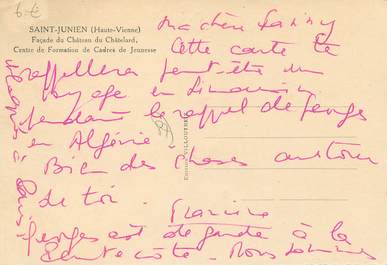 6-€
SAINT-JUNIEN (Haute-Vienne)
Façade du Château du Châtelard,
Centre de Formation de Cadres de Jeunesse
Ma chère Fanny
Cette carte te
rappellera peut-être un
voyage en Limousin
pendant le rappel de Georges
en Algérie.
Bien des choses autour
de toi.
Georges est de garde à la
côte. Nous sommes
à Paris